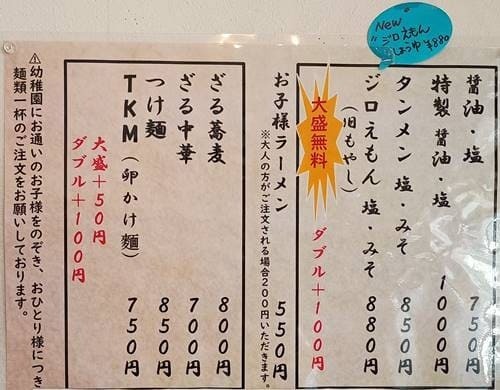 New
"ジロえもん
しょうゆ ¥880
醤油・塩 750円
特製 醤油・塩 1000円
タンメン 塩・みそ 850円
ジロえもん 塩・みそ 880円
(旧もやし)
大盛無料
ダブル+100円
お子様ラーメン 550円
※大人の方がご注文される場合200円いただきます。
ざる蕎麦 800円
ざる中華 700円
つけ麺 850円
TKM(卵かけ麺) 750円
大盛+50円
ダブル+100円
⚠幼稚園にお通いのお子様をのぞき、おひとり様につき
麺類一杯のご注文をお願いしております。